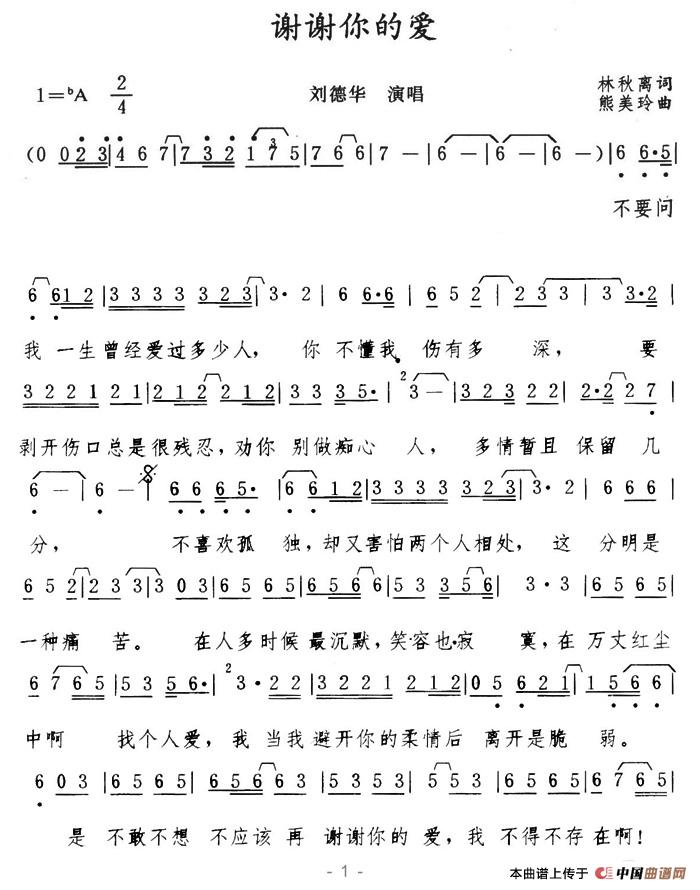 谢谢你的爱
1=ᵇA 2/4 刘德华 演唱 林秋离词
熊美玲曲
(0 0 2 3|4 6 7|7 3 2 1 7 5|7 6 6|7 —|6 —|6 —|6 —)|6 6·5|
不要问
6 6 1 2|3 3 3 3 3 2 3|3· 2|6 6·6|6 5 2|2 3 3|3 3·2|
我 一生曾经爱过多少人, 你 不懂我 伤有多 深, 要
3 2 2 1 2 1|2 1 2 2 1 2|3 3 5·|3 —|3 2 3 2 2|2·2 2 7|
剥开伤口总是很残忍,劝你 别做痴心 人, 多情暂且 保留 几
6 —|6 —|6 6 6 5·|6 6 1 2|3 3 3 3 3 2 3|3· 2|6 6 6|
分, 不喜欢孤 独,却又害怕两个人相处, 这 分明是
6 5 2|2 3 3|3 0 3|6 5 6 5|6 5 6 6|5 3 3 5 6|3· 3|6 5 6 5|
一种痛 苦。 在人多时候 最沉默,笑容也寂 寞,在 万丈红尘
6 7 6 5|5 3 5 5 6·|3· 2 2|3 2 2 1 2 1|2 2 1 2|0 5 6 2 1|1 5 6 6|
中啊 找个人爱,我 当我 避开你的柔情后 离开是脆 弱。
6 0 3|6 5 6 5|6 5 6 6 3|5 3 5 3|5 5 3|5 6 5 6 5|6 7 6 5|
是 不敢不想 不应该 再 谢谢你的 爱,我 不得不存在啊!
- 1 -
本曲谱上传于 中国曲谱网